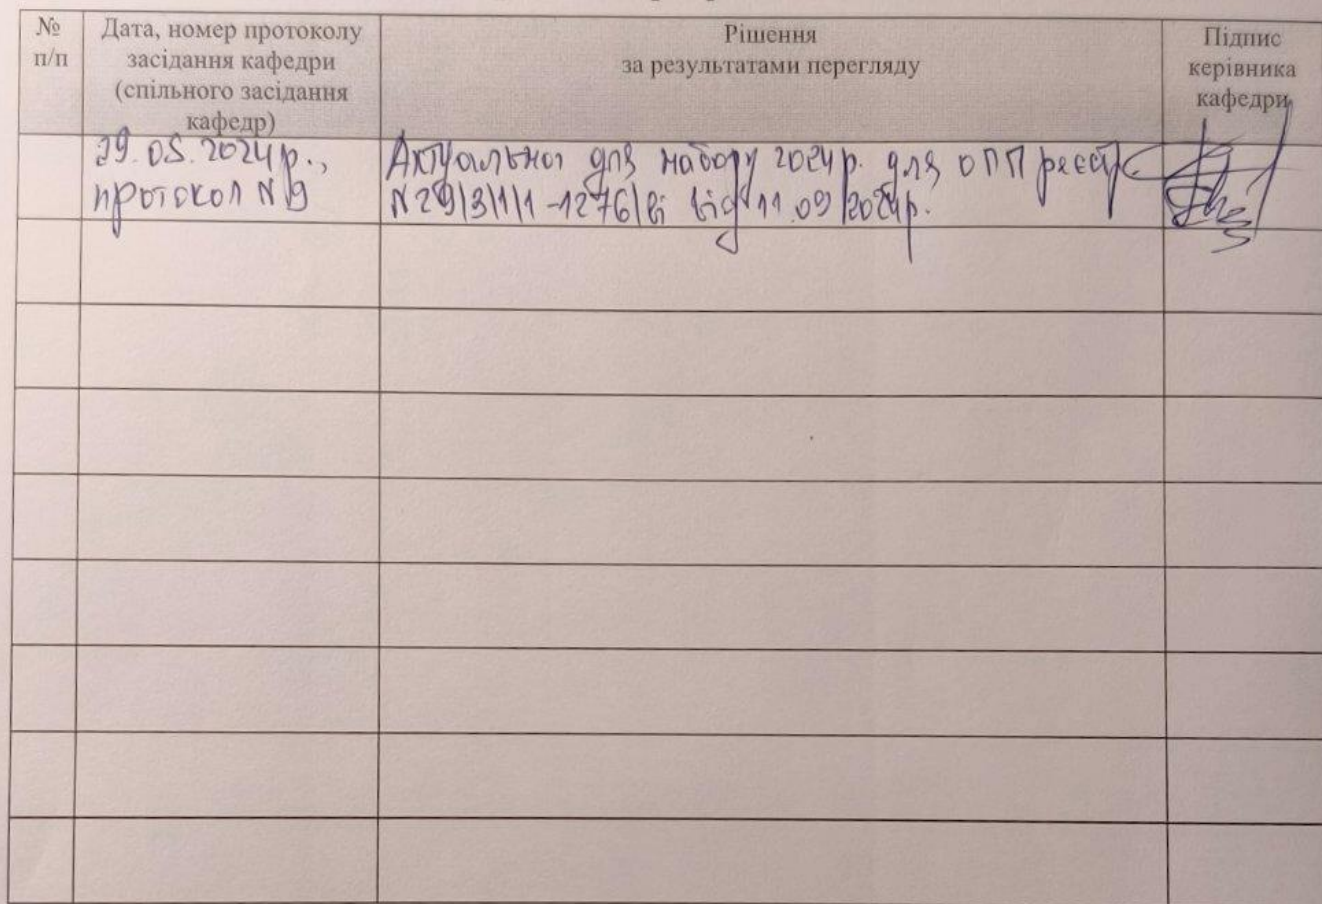 №
п/п
Дата, номер протоколу
засідання кафедри
(спільного засідання
кафедр)
Рішення
за результатами перегляду
Підпис
керівника
кафедри
29.05.2024р.,
протокол N 9
Актуальна для набору 2024р. для ОПП реєстр
N 29/3/1/1-1276/ві від 11.09 2024р.